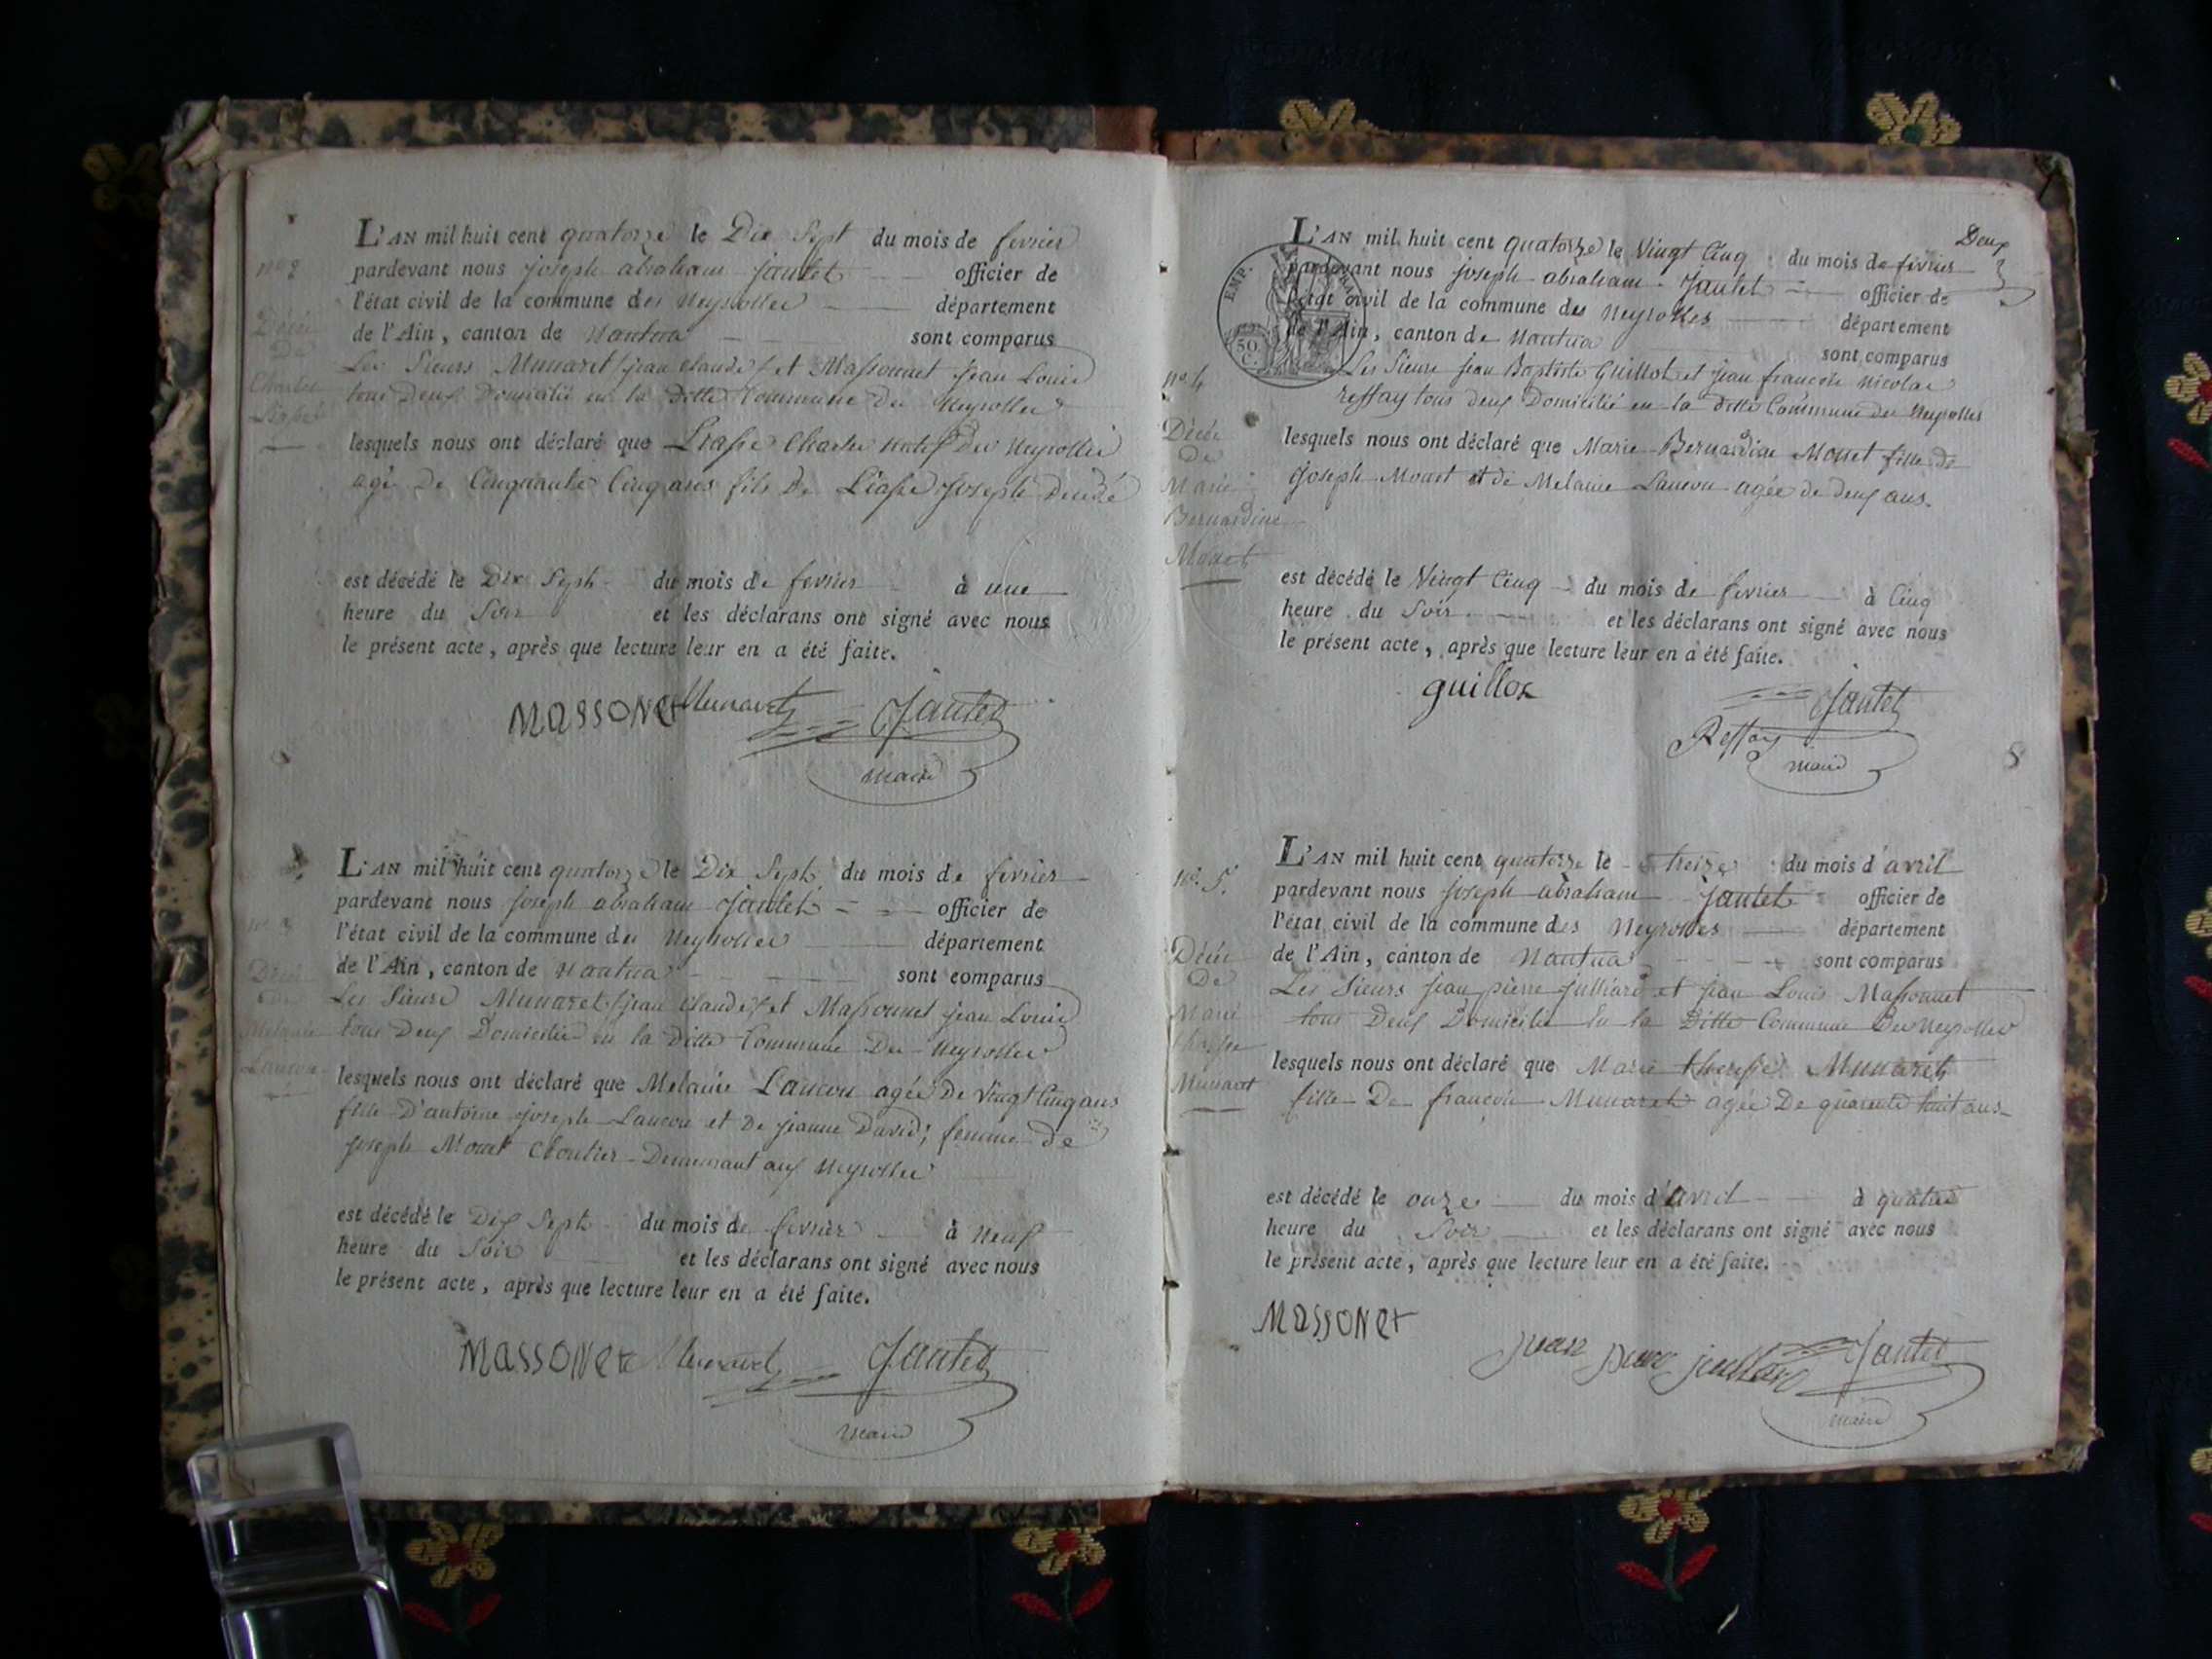 L'AN mil huit cent quatorze le Dix Sept du mois de fevrier
pardevant nous joseph abraham jantet officier de
l'état civil de la commune des Neyrolles département
de l'Ain, canton de Nantua sont comparus
Les Sieurs Munaret jean claude et Massonnet jean Louis
tous Deux Domicilié en la ditte Commune Des Neyrolles
lesquels nous ont déclaré que Charles natif Des Neyrolles
agé De Cinquante Cinq ans fils De Joseph
est décédé le Dix Sept du mois de fevrier à une
heure du Soir et les déclarans ont signé avec nous
le présent acte, après que lecture leur en a été faite.
Massonet Munaret Jantet
maire
Décès
De
Charles
L'AN mil huit cent quatorze le Dix Sept du mois de fevrier
pardevant nous joseph abraham Jantet officier de
l'état civil de la commune des Neyrolles département
de l'Ain, canton de Nantua sont comparus
Les Sieurs Munaret jean claude et Massonnet jean Louis
tous Deux Domicilié en la ditte Commune Des Neyrolles
lesquels nous ont déclaré que Melanie Lancon agée De Vingt Cinq ans
fille D'antoine joseph Lancon et De jeanne David; femme de
joseph Monet Cloutier Demeurant aux Neyrolles
est décédé le Dix Sept du mois de fevrier à Neuf
heure du Soir et les déclarans ont signé avec nous
le présent acte, après que lecture leur en a été faite.
Massonet Munaret Jantet
maire
Décès
de
Melanie
Lancon
Deux
L'AN mil huit cent quatorze le Vingt Cinq du mois de fevrier
pardevant nous joseph abraham Jantet officier de
l'état civil de la commune des Neyrolles département
de l'Ain, canton de Nantua sont comparus
EMP.
50
C.
Les Sieurs jean Baptiste Guillot et jean francois Nicolas
reffay tous deux Domicilié en la ditte Commune des Neyrolles
lesquels nous ont déclaré que Marie Bernardine Monet fille de
joseph Monet et de Melanie Lancon agée de deux ans.
est décédé le Vingt Cinq du mois de fevrier à Cinq
heure du Soir et les déclarans ont signé avec nous
le présent acte, après que lecture leur en a été faite.
guillot Jantet
Reffay
maire
no. 4
Décès
De
Marie
Bernardine
Monet
L'AN mil huit cent quatorze le treize du mois d'avril
pardevant nous joseph abraham Jantet officier de
l'état civil de la commune des Neyrolles département
de l'Ain, canton de Nantua sont comparus
Les Sieurs jean pierre julliard et jean Louis Massonnet
tous Deux Domicilié En la Ditte Commune Des Neyrolles
lesquels nous ont déclaré que Marie theresse Munaret
fille De francois Munaret agée De quarante huit ans
est décédé le onze du mois d'avril à quatre
heure du Soir et les déclarans ont signé avec nous
le présent acte, après que lecture leur en a été faite.
Massonet
jean pierre julliard Jantet
maire
no. 5.
Décès
De
Marie
theresse
Munaret